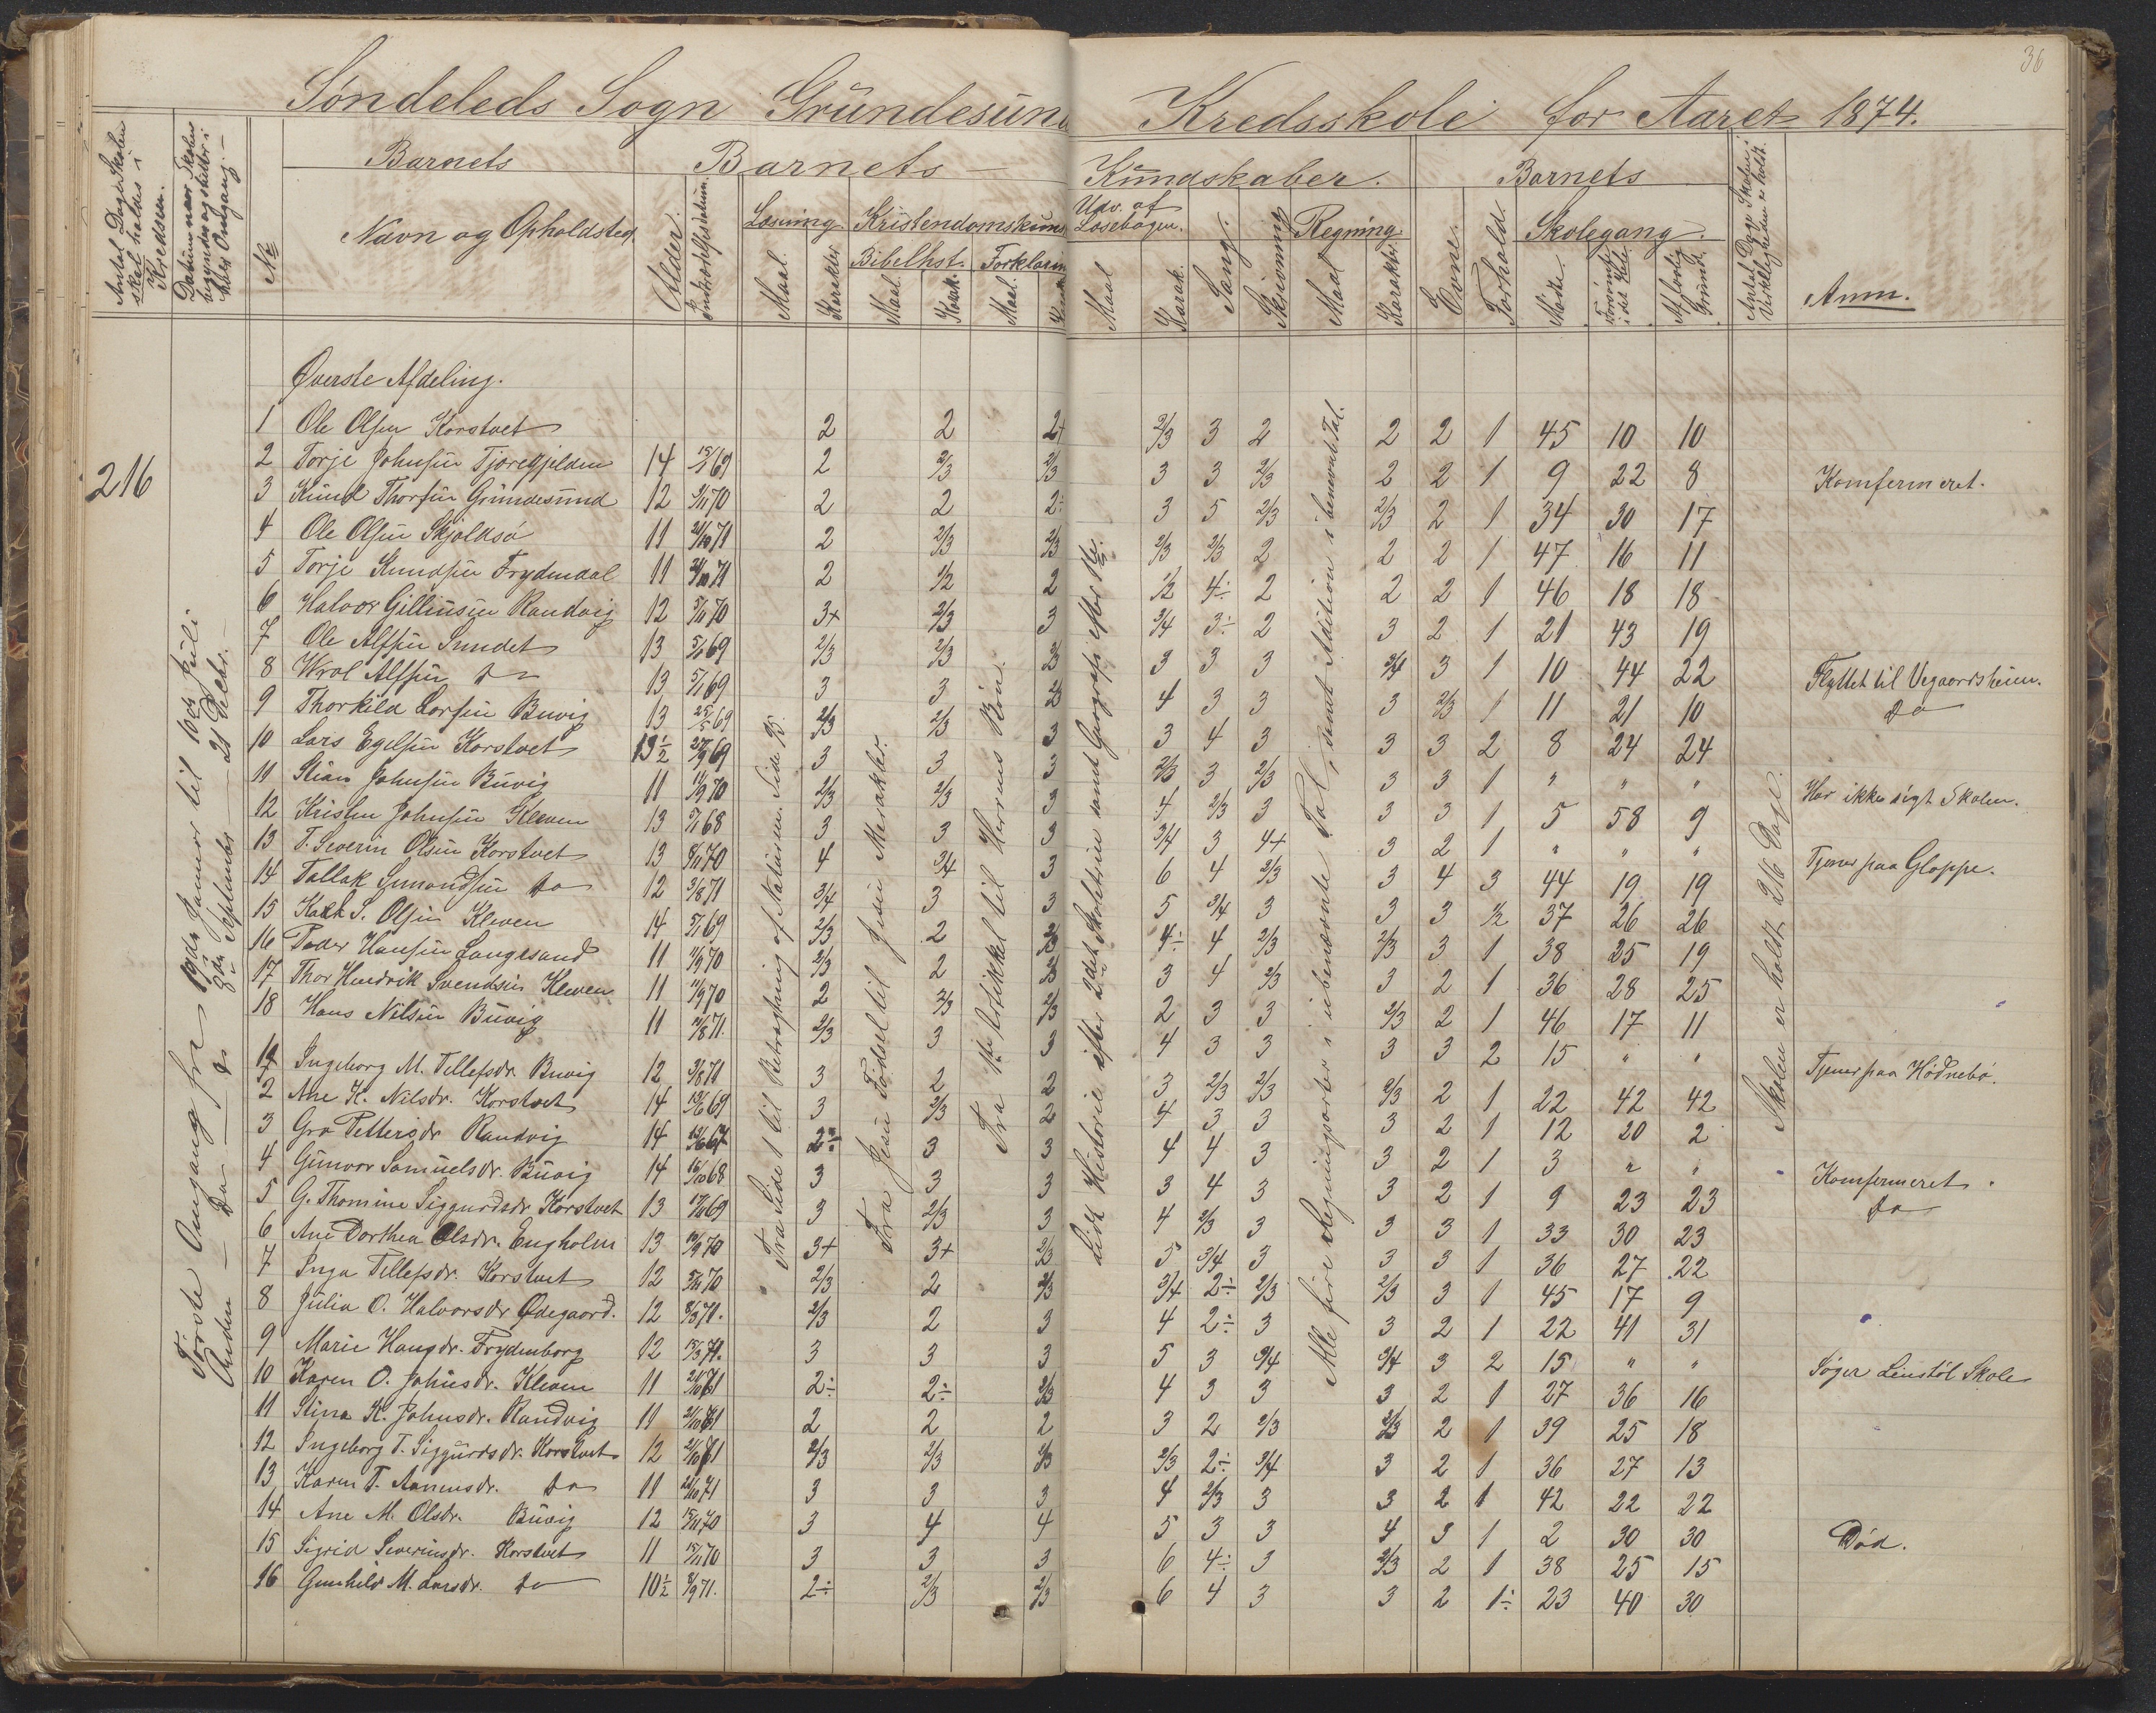 36
Søndeleds Sogn Gründesund Kredsskole for Aaret 1874.
Antal Dage Skolen skal holdes i Kredsen.
Datum naar Skolen begyndes og slutter i hver Omgang.
No
Barnets
Navn og Opholdsted.
Barnets Kundskaber.
Alder.
Indtrædelsesdatum.
Læsning.
Maal.
Karakter
Kristendomskund
Bibelhist.
Maal.
Karak.
Forklaring
Maal.
Udv. af Læsebogen.
Maal
Karak.
Sang.
Skrivning
Regning
Maal
Karakter.
Barnets
Evne.
Forhold.
Skolegang.
Mødte.
Forsømte i det Hele.
Af lovlig Grund.
Antal Dage Skolen i Virkeligheden er holdt.
Anm.
216
Første Omgang fra 19de Januar til 10de Juli
Anden Do 8de September 21 Decbr.
Fra Side 1 til Betragtning af Naturen. Side 95.
Fra Jesu Fødsel til Jesu Mirakler.
Fra 1ste Artikkel til Herrens Bøn.
Lidt Historie efter 2det Skoletrin samt Geografi efter do.
Alle fire Regningsarter i ubenævnte Tal, samt Addition i benævnt Tal.
Skolen er holdt 216 Dage.
Øverste Afdeling.
1 Ole Olsen Korstvet 2 2 2+ 2/3 3 2 2 2 1 45 10 10
2 Torje Johnsen Tjorekjelden 14 15/1 69 2 2/3 2/3 3 3 2/3 2 2 1 9 22 8 Komfermeret.
3 Knud Thorsen Gründesund 12 5/11 70 2 2 2÷ 3 5 2/3 2/3 2 1 34 30 17
4 Ole Olsen Skjoldsø 11 21/10 71 2 2/3 2/3 2/3 2/3 2 2 2 1 47 16 11
5 Torje Knudsen Frydendal 11 21/10 71 2 1/2 2 1/2 4÷ 2 2 2 1 46 18 18
6 Halvor Gillinsen Randvig 12 5/11 70 3+ 2/3 3 3/4 3÷ 2 3 2 1 21 43 19
7 Ole Alfsen Sundet 13 5/1 69 2/3 2/3 3 3 3 3/4 3 1 10 44 22 Flyttet til Vegaardsheim.
8 Wrol Alfsen Do 13 5/1 69 3 3 4 3 3 3 2/3 1 11 21 10 Do
9 Thorkild Larsen Buvig 13 25/5 69 2/3 2/3 3 3 4 3 3 3 2 8 24 24
10 Lars Egelsen Korstvet 13½ 27/9 69 3 3 3 2/3 3 2/3 3 3 1 " " " Har ikke søgt Skolen.
11 Stian Johnsen Buvig 11 11/9 70 2/3 2/3 3 4 2/3 3 3 3 1 5 58 9
12 Kristen Johnsen Kleven 13 5/1 68 3 3 3 3/4 3 4+ 3 2 1 " " " Tjener paa Gloppe.
13 T. Severin Olsen Korstvet 13 8/11 70 4 3/4 3 6 4 2/3 3 4 3 44 19 19
14 Tallak Gunnondsen Do 12 3/8 71 3/4 3 3 5 3/4 3 3 3 1/2 37 26 26
15 S. Olsen Kleven 14 5/1 69 2/3 2 4÷ 4 2/3 2/3 3 1 38 25 19
16 Peder Hansen Langesand 11 11/9 70 2/3 2 3 4 2/3 3 2 1 36 28 25
17 Thor Hendrik Svendsen Kleven 11 11/9 70 2 2/3 2/3 2 3 3 2/3 2 1 46 17 11
18 Hans Nilsen Buvig 11 10/8 71. 2/3 3 3 4 3 3 3 3 2 15 " " Tjener paa Hødnebø.
1 Ingeborg M. Tellefsdr. Buvig 12 9/8 71 3 2 2 3 2/3 2/3 2/3 2 1 22 42 42
2 Ane K. Nilsdr. Korstvet 14 13/6 69 3 2/3 2 4 3 3 3 2 1 12 20 2
3 Gro Pettersdr Randvig 14 2÷ 3 3 4 4 3 3 2 1 3 " "
4 Gunvor Samuelsdr. Buvig 14 16/10 68 3 3 3 3 4 3 3 2 1 9 23 23 Komfermeret.
5 G. Thomine Siggurdsdr. Korstvet 13 17/11 69 3 2/3 3 4 2/3 3 3 3 1 33 30 23 Do
6 Ane Dorthea Olsdr. Engholm 13 10/9 70 3+ 3+ 2/3 5 3/4 3 3 3 1 36 27 22
7 Inga Tellefsdr. Korstvet 12 5/11 70 2/3 2 2/3 3/4 2÷ 2/3 2/3 3 1 45 17 9
8 Julia O. Halvorsdr Ødegaard. 12 8/8 71. 2/3 2 3 4 2÷ 3 3 2 1 22 41 31
9 Marie Haugdr. Frydenborg 12 15/3 71. 3 3 3 5 3 3/4 3/4 3 2 15 " " Søger Leirstøl Skole
10 Karen O. Johnsdr. Kleven 11 2÷ 2÷ 2/3 4 3 3 3 2 1 27 36 16
11 Stina K. Johnsdr. Randvig 11 2 2 2 3 2 2/3 2/3 2 1 39 25 18
12 Ingeborg T. Siggurdsdr. Korstvet 12 2/3 2/3 2/3 2/3 2÷ 3/4 3 2 1 36 27 13
13 Karen T. Aanensdr. Do 11 24/10 71 3 3 3 4 2/3 3 3 2 1 42 22 22
14 Ane M. Olsdr. Buvig 12 15/11 70 3 4 4 5 3 3 4 3 1 2 30 30 Død.
15 Sigrid Severinsdr. Korstvet 11 15/11 70 3 3 3 6 4÷ 3 2/3 2 1 38 25 15
16 Gunhild M. Larsdr. Do 10½ 8/9 71. 2÷ 2/3 2/3 6 4 3 3 2 1÷ 23 40 30